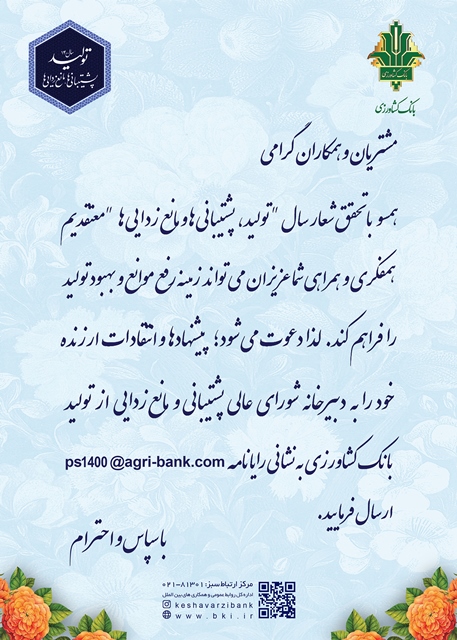 سال ۱۴۰۰
تولید
پشتیبانی‌ها، مانع‌زدایی‌ها
بانک کشاورزی
بانک کشاورزی
مشتریان و همکاران گرامی
همسو با تحقق شعار سال "تولید، پشتیبانی ها و مانع زدایی ها" معتقدیم
همفکری و همراهی شما عزیزان می تواند زمینه رفع موانع و بهبود تولید
را فراهم کند. لذا دعوت می شود؛ پیشنهادها و انتقادات ارزنده
خود را به دبیرخانه شورای عالی پشتیبانی و مانع زدایی از تولید
بانک کشاورزی به نشانی رایانامه ps1400@agri-bank.com
ارسال فرمایید.
با سپاس و احترام
مرکز ارتباط سبز: ۸۱۳۰۱-۰۲۱
اداره کل روابط عمومی و همکاری های بین الملل
keshavarzibank
www.bki.ir